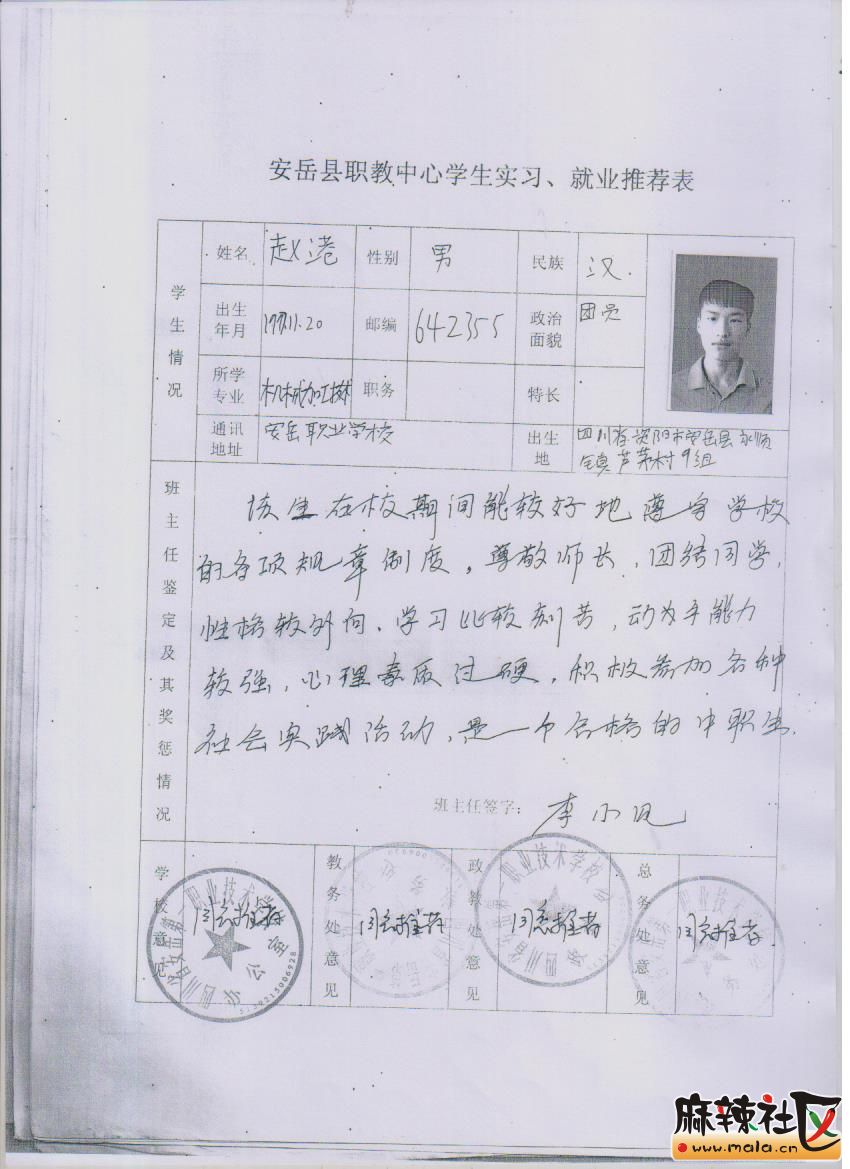 安岳县职教中心学生实习、就业推荐表
学生情况
姓名 赵港 性别 男 民族 汉
出生年月 邮编 642355 政治面貌 团员
所学专业 机械加工技术 职务 特长
通讯地址 安岳职业学校 出生地 四川省资阳市安岳县永顺
镇芦茅村9组
班主任鉴定及其奖惩情况
该生在校期间能较好地遵守学校
的各项规章制度，尊敬师长，团结同学，
性格较外向、学习比较刻苦，动手能力
较强，心理素质过硬，积极参加各种
社会实践活动，是一个合格的中职生.
班主任签字：李小
学校意见 同意推荐 教务处意见 同意推荐 政教处意见 同意推荐 总务处意见 同意推荐
办公室
麻辣社区
www.mala.cn